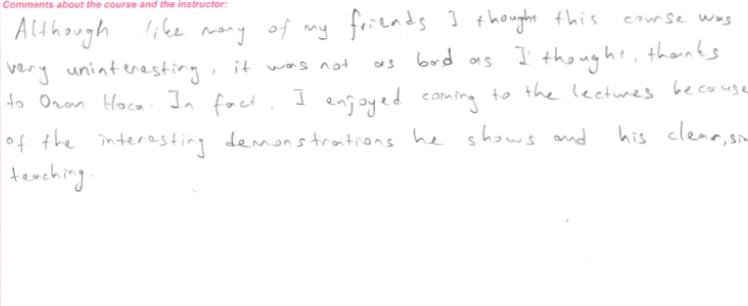 Comments about the course and the instructor:
Although like many of my friends I thought this course was
very uninteresting, it was not as bad as I thought, thanks
to Ozan Hoca. In fact, I enjoyed coming to the lectures because
of the interesting demonstrations he shows and his clear,
teaching.